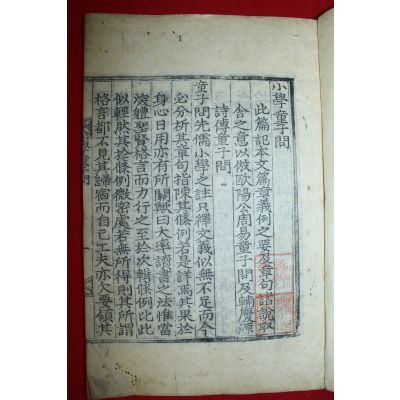 小學童子問
此篇記本文篇章義例之要及章句諸說取
舍之意以倣歐陽公周易童子問及輔慶源
詩傳童子問
童子問先儒小學之註只釋文義似無不足而今
必分析其章句指陳其條例若是詳焉其果於
身心日用亦有所關歟曰大率讀書之法惟當
深軆聖賢格言而力行之至於次輯條例比此
似輕肰其於條例微密處若無所得則其所謂
格言都不見其歸宿而自己工夫亦欠要領其